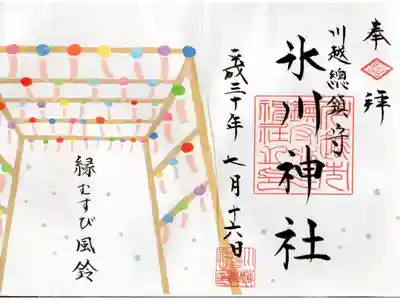 奉拝
川越總鎮守
氷川神社
平成三十年七月十六日
縁むすび風鈴